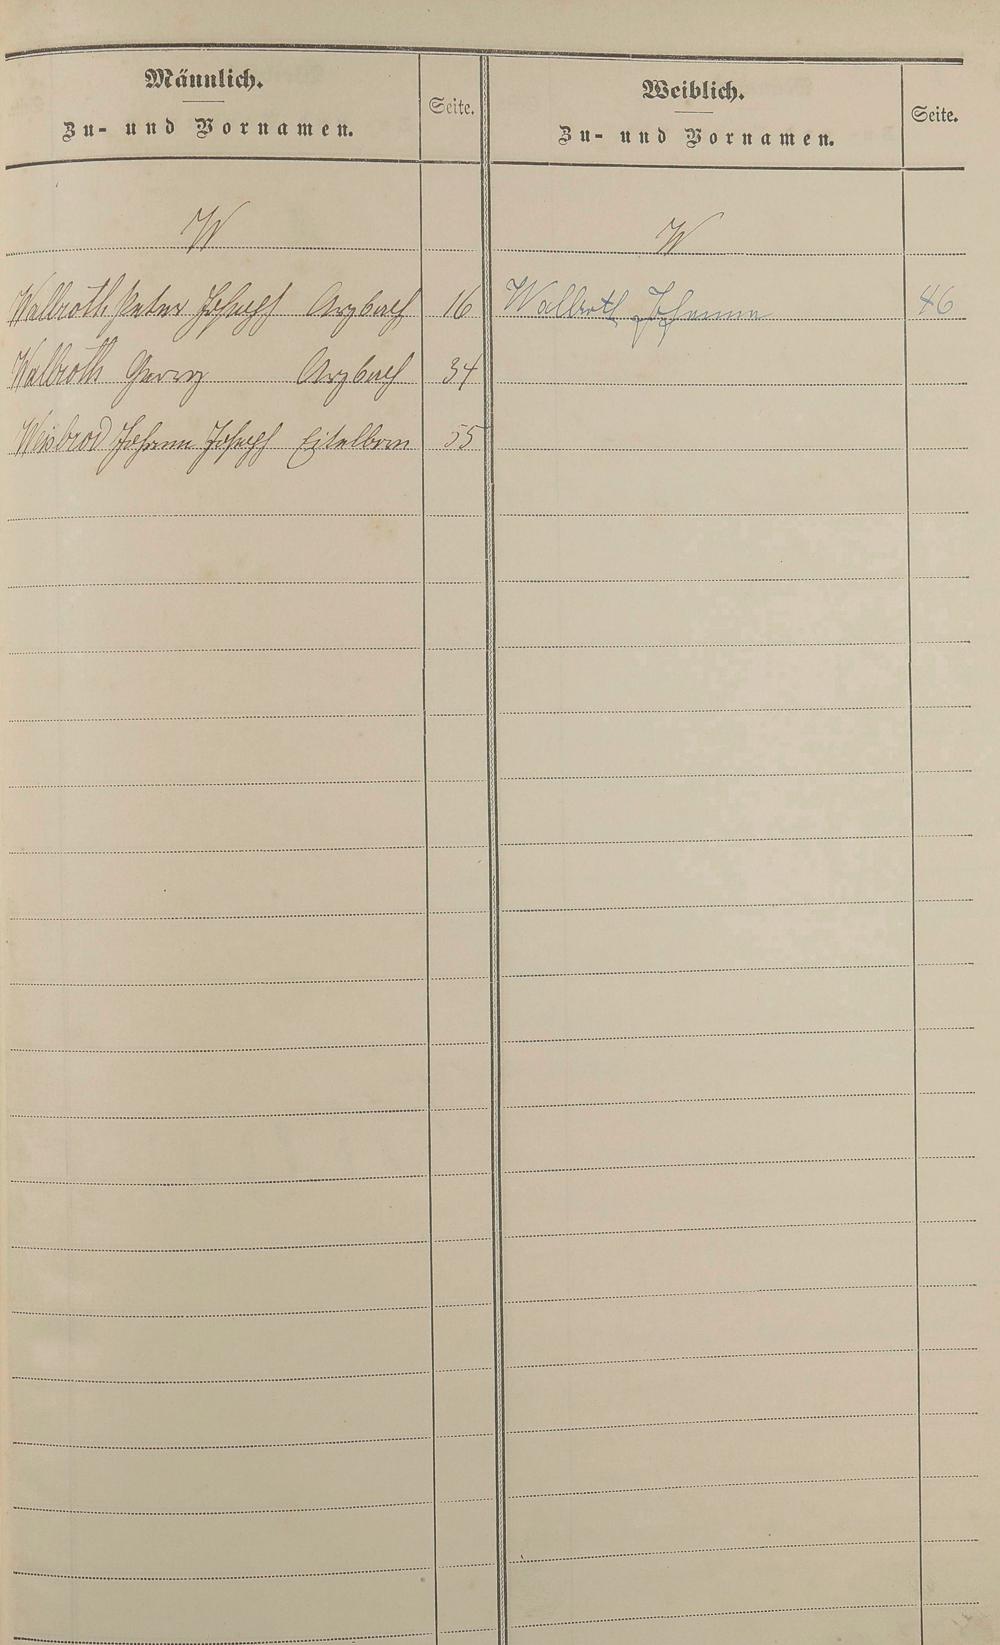 Männlich.
Zu- und Vornamen.
Seite.
Weiblich.
Zu- und Vornamen.
Seite.
W
W
Wallroth Peter Joseph Arzbach 16
Wallroth Johanna 46
Wallroth Georg Arzbach 34
Weisbrod Johann Joseph Eitelborn 55